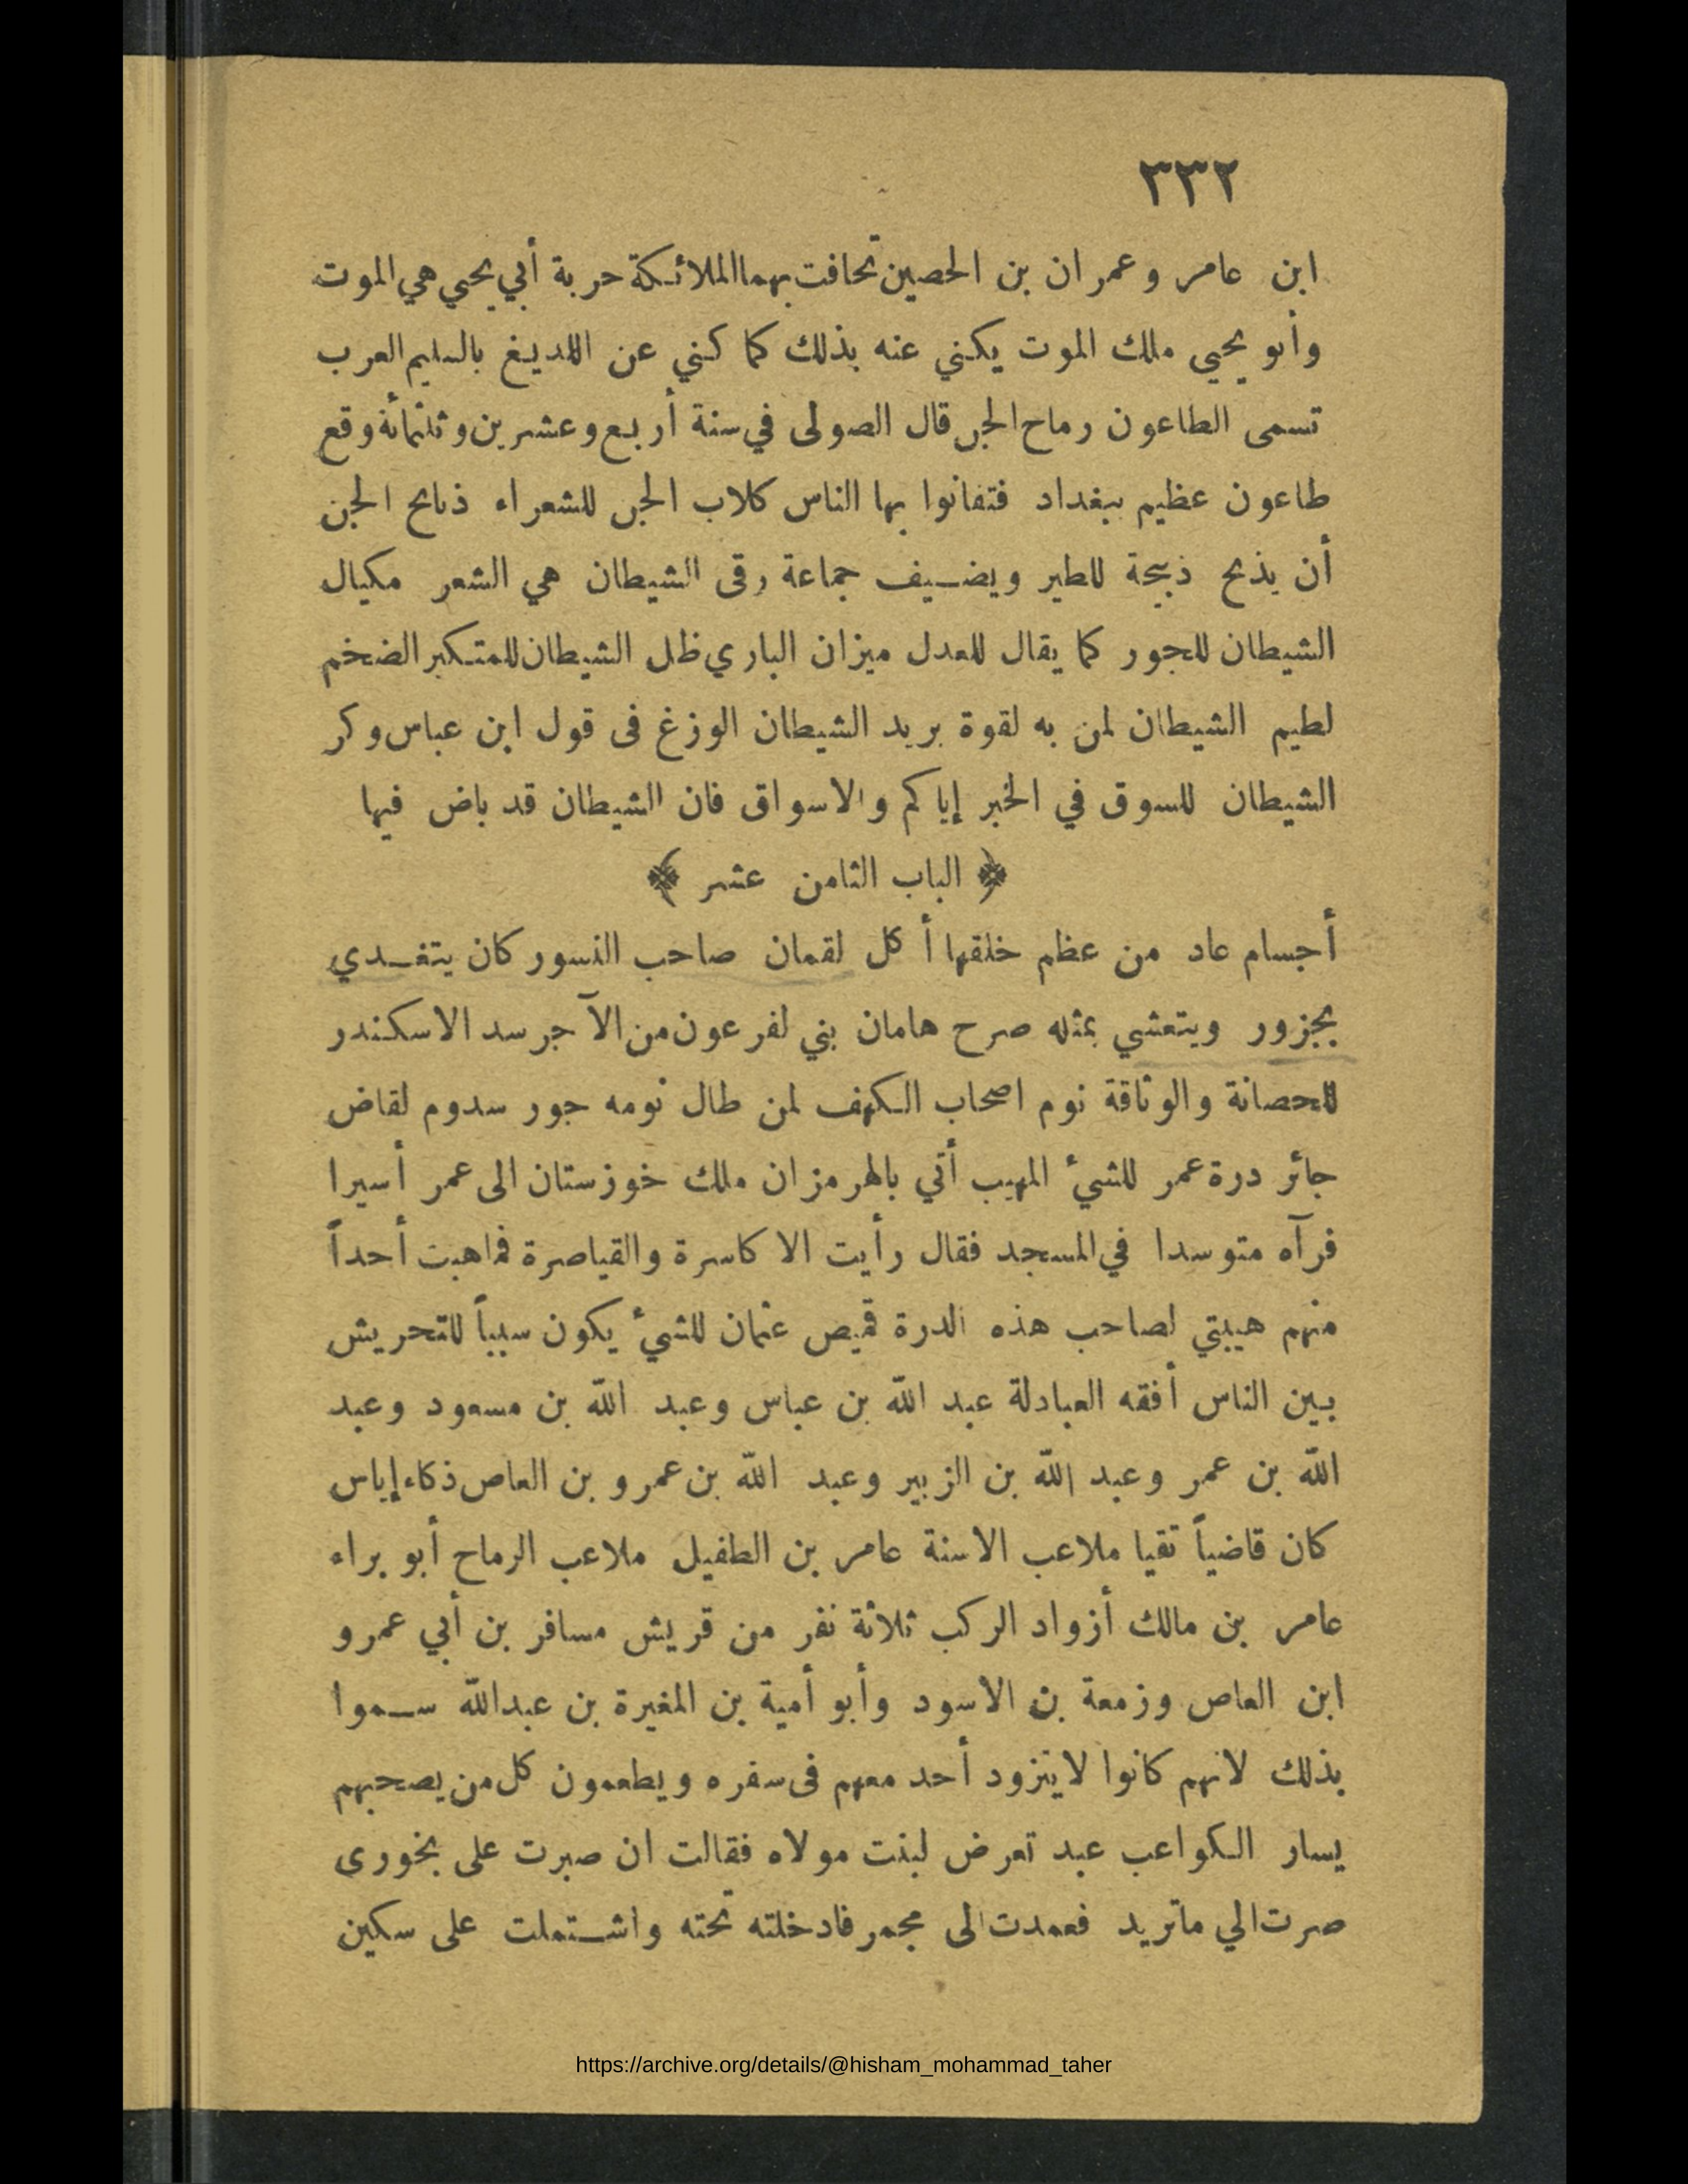 ٣٣٢
ابن عامر وعمران بن الحصين تحافت بهما الملائكة حربة أبي يحيي هي الموت
وأبو يحيي ملك الموت يكني عنه بذلك كما كني عن اللديغ بالسليم العرب
تسمى الطاعون رماح الجن قال الصولى في سنة أربع وعشرين وثلثمائة وقع
طاعون عظيم ببغداد فتفانوا بها الناس كلاب الجن للشعراء ذبائح الجن
أن يذبح ذبيحة للطير ويضيف جماعة رقى الشيطان هي الشعر مكيال
الشيطان للجور كما يقال للعدل ميزان الباري ظل الشيطان للمتكبر الضخم
لطيم الشيطان لمن به لقوة بريد الشيطان الوزغ فى قول ابن عباس وكر
الشيطان للسوق في الخبر إياكم والاسواق فان الشيطان قد باض فيها
﴿ الباب الثامن عشر ﴾
أجسام عاد من عظم خلقها أكل لقمان صاحب النسور كان يتغدي
بجزور ويتعشي بمثله صرح هامان بني لفرعون من الآجر سد الاسكندر
للحصانة والوثاقة نوم اصحاب الكهف لمن طال نومه جور سدوم لقاض
جائر درة عمر للشيء المهيب أتي بالهرمزان ملك خوزستان الى عمر أسيرا
فرآه متوسدا في المسجد فقال رأيت الاكاسرة والقياصرة فما هبت أحداً
منهم هيبتي لصاحب هذه الدرة قميص عثمان للشيء يكون سبباً للتحريش
بين الناس أفقه العبادلة عبد الله بن عباس وعبد الله بن مسعود وعبد
الله بن عمر وعبد الله بن الزبير وعبد الله بن عمرو بن العاص ذكاء إياس
كان قاضياً تقيا ملاعب الاسنة عامر بن الطفيل ملاعب الرماح أبو براء
عامر بن مالك أزواد الركب ثلاثة نفر من قريش مسافر بن أبي عمرو
ابن العاص وزمعة بن الاسود وأبو أمية بن المغيرة بن عبدالله سموا
بذلك لانهم كانوا لايتزود أحد معهم فى سفره ويطعمون كل من يصحبهم
يسار الكواعب عبد تعرض لبنت مولاه فقالت ان صبرت على بخورى
صرت الي ماتريد فعمدت الى مجمر فادخلته تحته واشتملت على سكين
https://archive.org/details/@hisham_mohammad_taher